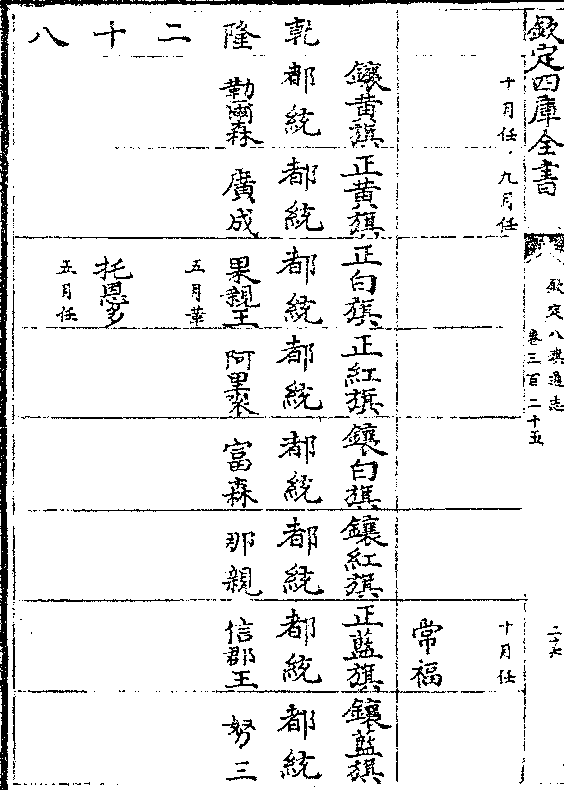 欽定四庫全書
欽定八旗通志
卷三百二十五
十月任
九月任
十月任
常福
鑲黃旗
正黃旗
正白旗
正紅旗
鑲白旗
鑲紅旗
正藍旗
鑲藍旗
乾隆二十八
都統
都統
都統
都統
都統
都統
都統
都統
勒爾森
廣成
果親王
阿里袞
富森
那親
信郡王
努三
五月革
托恩多
五月任